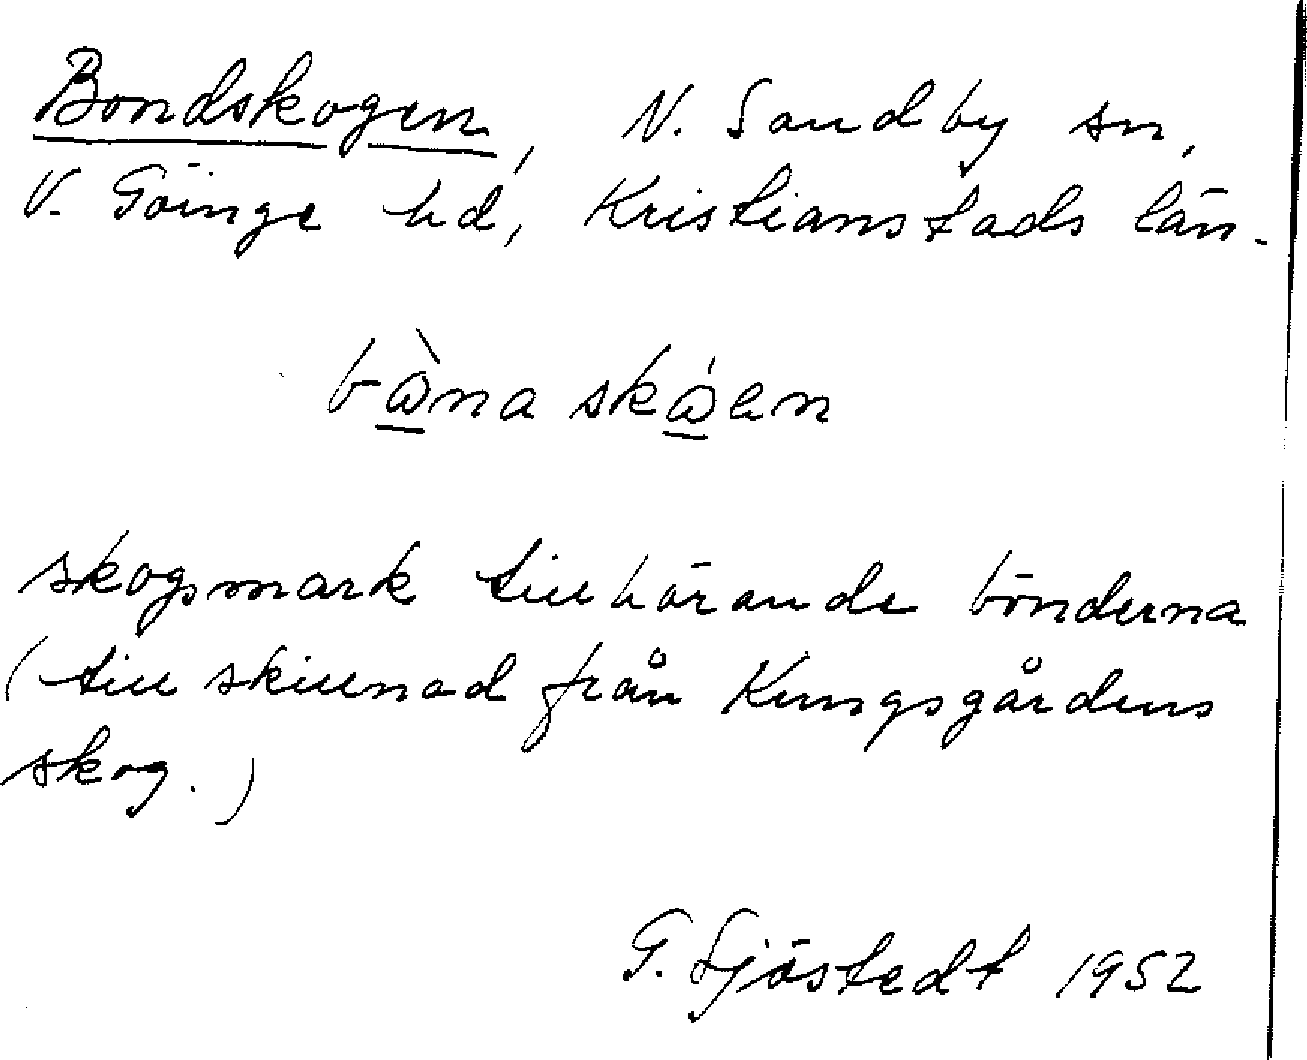 Bondskogen, N. Sandby sn,
V. Göinge hd, Kristianstads län.
båǹa skåen
skogsmark tillhörande bönderna
(till skillnad från Kungsgårdens
skog.)
G. Sjöstedt 1952